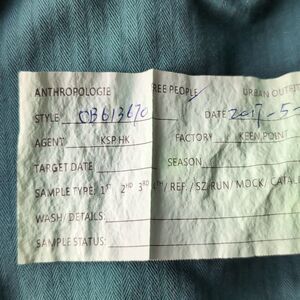 ANTHROPOLOGIE FREE PEOPLE URBAN OUTFIT
STYLE OB613670 DATE 2017-5-
AGENT KSP.HK FACTORY KEEN POINT
TARGET DATE SEASON
SAMPLE TYPE: 1ST 2ND 3RD 4TH/ REF. / SZ RUN/ MOCK/ CATAL
WASH/ DETAILS:
SAMPLE STATUS: